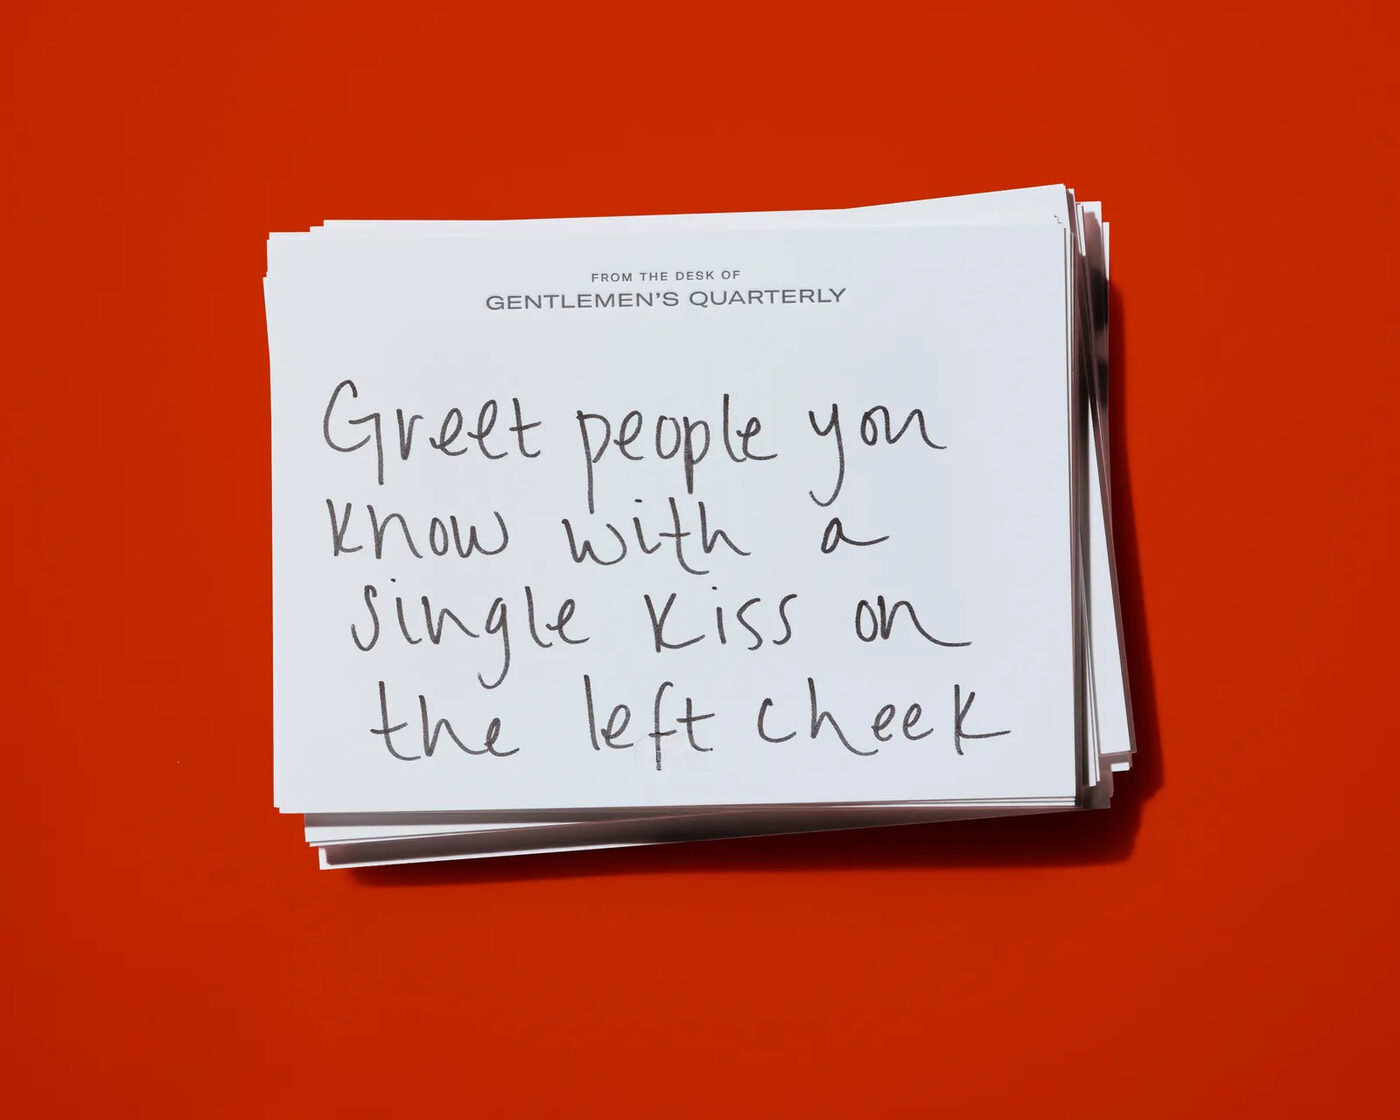 FROM THE DESK OF
GENTLEMEN'S QUARTERLY
Greet people you
know with a
single kiss on
the left cheek